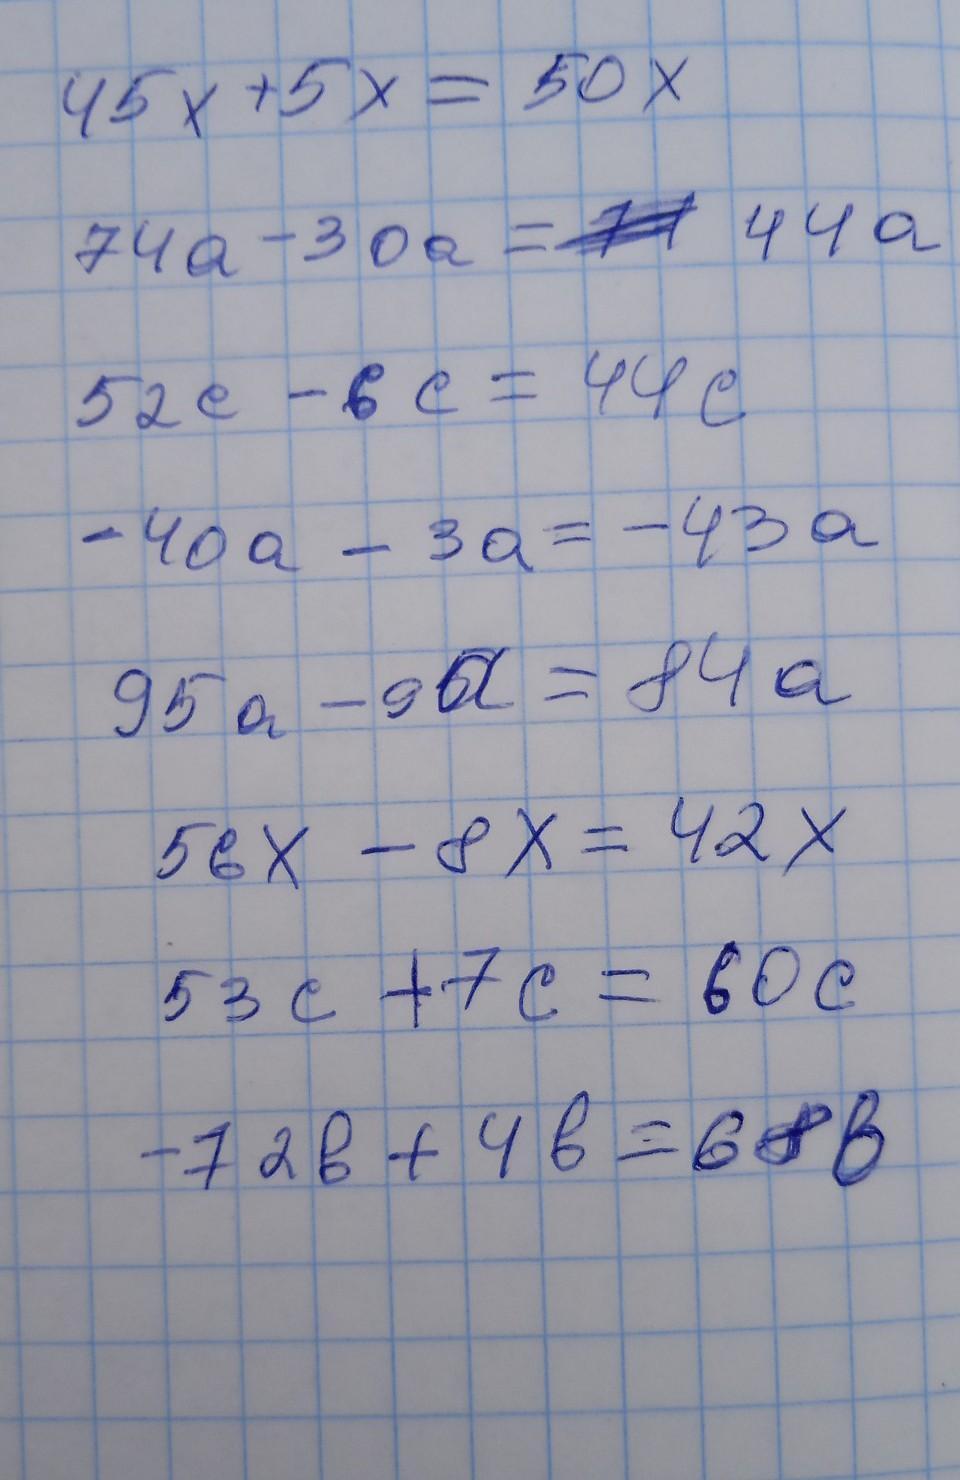 45x+5x=50x
74a-30a= 44a
52c-6c=44c
-40a-3a=-43a
95a-9a=84a
56x-8x=42x
53c+7c=60c
-72b+4b=68b